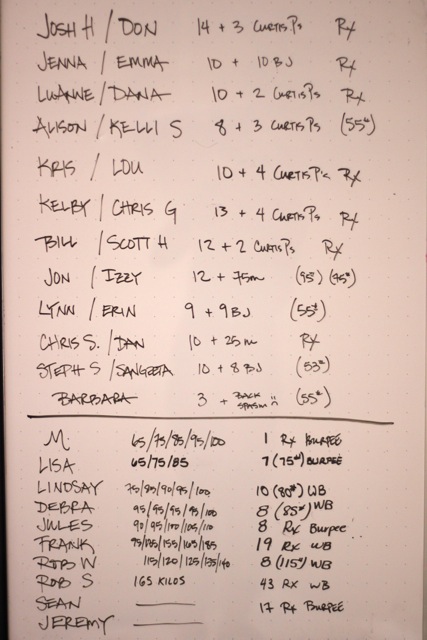 JOSH H / DON 14 + 3 CURTIS Ps Rx
JENNA / EMMA 10 + 10 BJ Rx
LUANNE / DANA 10 + 2 CURTIS Ps Rx
ALISON / KELLI S 8 + 3 CURTIS Ps (55#)
KRIS / LOU 10 + 4 CURTIS P's Rx
KELBY / CHRIS G 13 + 4 CURTIS Ps Rx
BILL / SCOTT H 12 + 2 CURTIS Ps Rx
JON / IZZY 12 + 75m (95) (75#)
LYNN / ERIN 9 + 9 BJ (55#)
CHRIS S. / DAN 10 + 25 m Rx
STEPH S / SANGEETA 10 + 8 BJ (53#)
BARBARA 3 + BACK SPASM :( (55#)
M. 65/75/85/95/100 1 Rx BURPEE
LISA 65/75/85 7 (75#) BURPEE
LINDSAY 75/85/90/95/100 10 (80#) WB
DEBRA 95/95/95/95/100 8 (85#) WB
JULES 90/95/100/105/110 8 Rx Burpee
FRANK 95/135/155/165/185 19 Rx WB
ROB W 115/120/125/135/140 8 (115#) WB
ROB S 165 KILOS 43 Rx WB
SEAN 17 Rx BURPEE
JEREMY